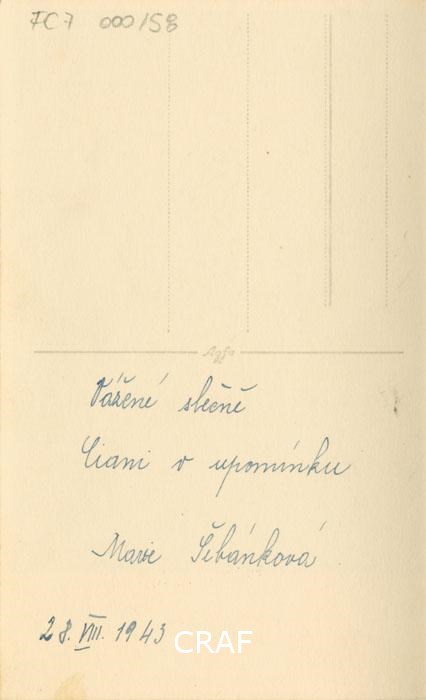 FC7 000/58
Agfa
Vážené slečně
Ciani v upomínku
Marie Šebánková
28. VIII. 1943
CRAF